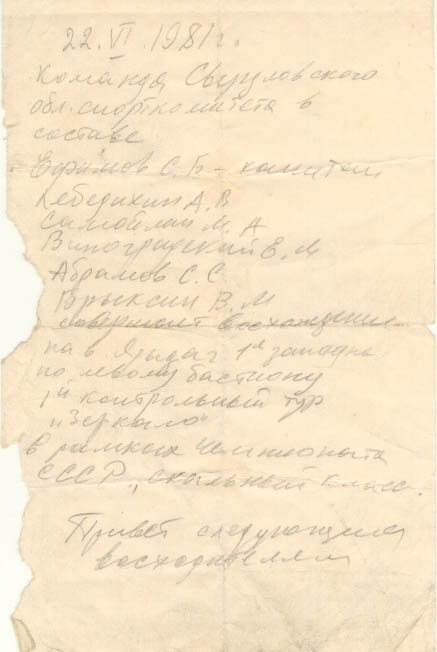 22.VI.1981г.
Команда Свердловского
обл. спорткомитета в
составе
Ефимов С.Б - капитан
Лебедихин А.В
Самойлин М.А
Виноградский Е.М
Абрамов С.С.
Брыксин В.М
совершает восхождение
на в. Ягыдаг 1е западна
по левому бастиону
1й контрольный тур
"Зеркало"
в рамках чемпионата
СССР, скальный класс.
Привет следующим
восходителям